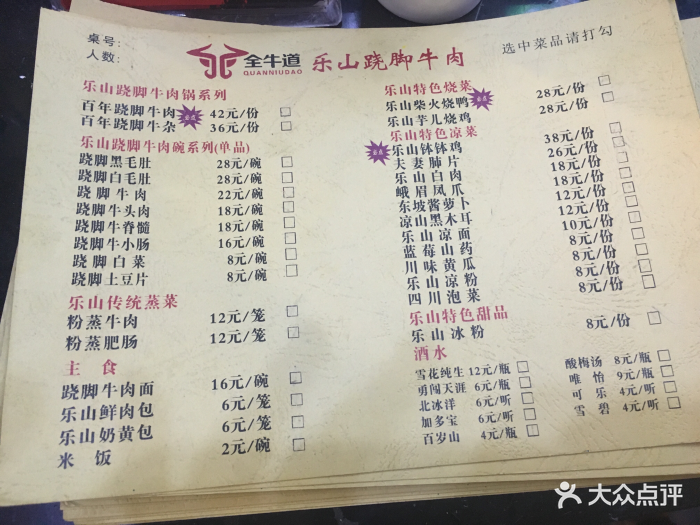 桌号:
人数:
全牛道
QUANNIUDAO
乐山跷脚牛肉
选中菜品请打勾
乐山跷脚牛肉锅系列
百年跷脚牛肉 42元/份
百年跷脚牛杂 36元/份
乐山跷脚牛肉碗系列(单品)
跷脚黑毛肚 28元/碗
跷脚白毛肚 28元/碗
跷脚牛肉 22元/碗
跷脚牛头肉 18元/碗
跷脚牛脊髓 18元/碗
跷脚牛小肠 16元/碗
跷脚白菜 8元/碗
跷脚土豆片 8元/碗
乐山传统蒸菜
粉蒸牛肉 12元/笼
粉蒸肥肠 12元/笼
主食
跷脚牛肉面 16元/碗
乐山鲜肉包 6元/笼
乐山奶黄包 6元/笼
米饭 2元/碗
乐山特色烧菜
乐山柴火烧鸭 28元/份
乐山芋儿烧鸡 28元/份
乐山特色凉菜
乐山钵钵鸡 38元/份
夫妻肺片 26元/份
乐山白肉 18元/份
峨眉凤爪 18元/份
东坡酱萝卜 12元/份
凉山黑木耳 12元/份
乐山凉面 10元/份
蓝莓山药 8元/份
川味黄瓜 8元/份
乐山凉粉 8元/份
四川泡菜 8元/份
乐山特色甜品
乐山冰粉 8元/份
酒水
雪花纯生 12元/瓶
勇闯天涯 6元/瓶
北冰洋 6元/听
加多宝 6元/听
百岁山 4元/瓶
酸梅汤 8元/瓶
唯怡 9元/瓶
可乐 4元/听
雪碧 4元/听
大众点评